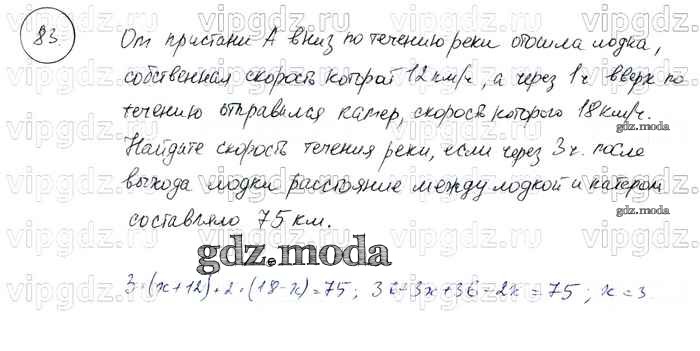 83.
От пристани А вниз по течению реки отошла лодка,
собственная скорость которой 12 км/ч, а через 1ч вверх по
течению отправился катер, скорость которого 18 км/ч.
gdz.moda
Найдите скорость течения реки, если через 3ч. после
выхода лодки расстояние между лодкой и катером
составляло 75 км.
gdz.moda
gdz.moda
3·(x+12)+2·(18-x)=75; 36+3x+36-2x=75; x=3